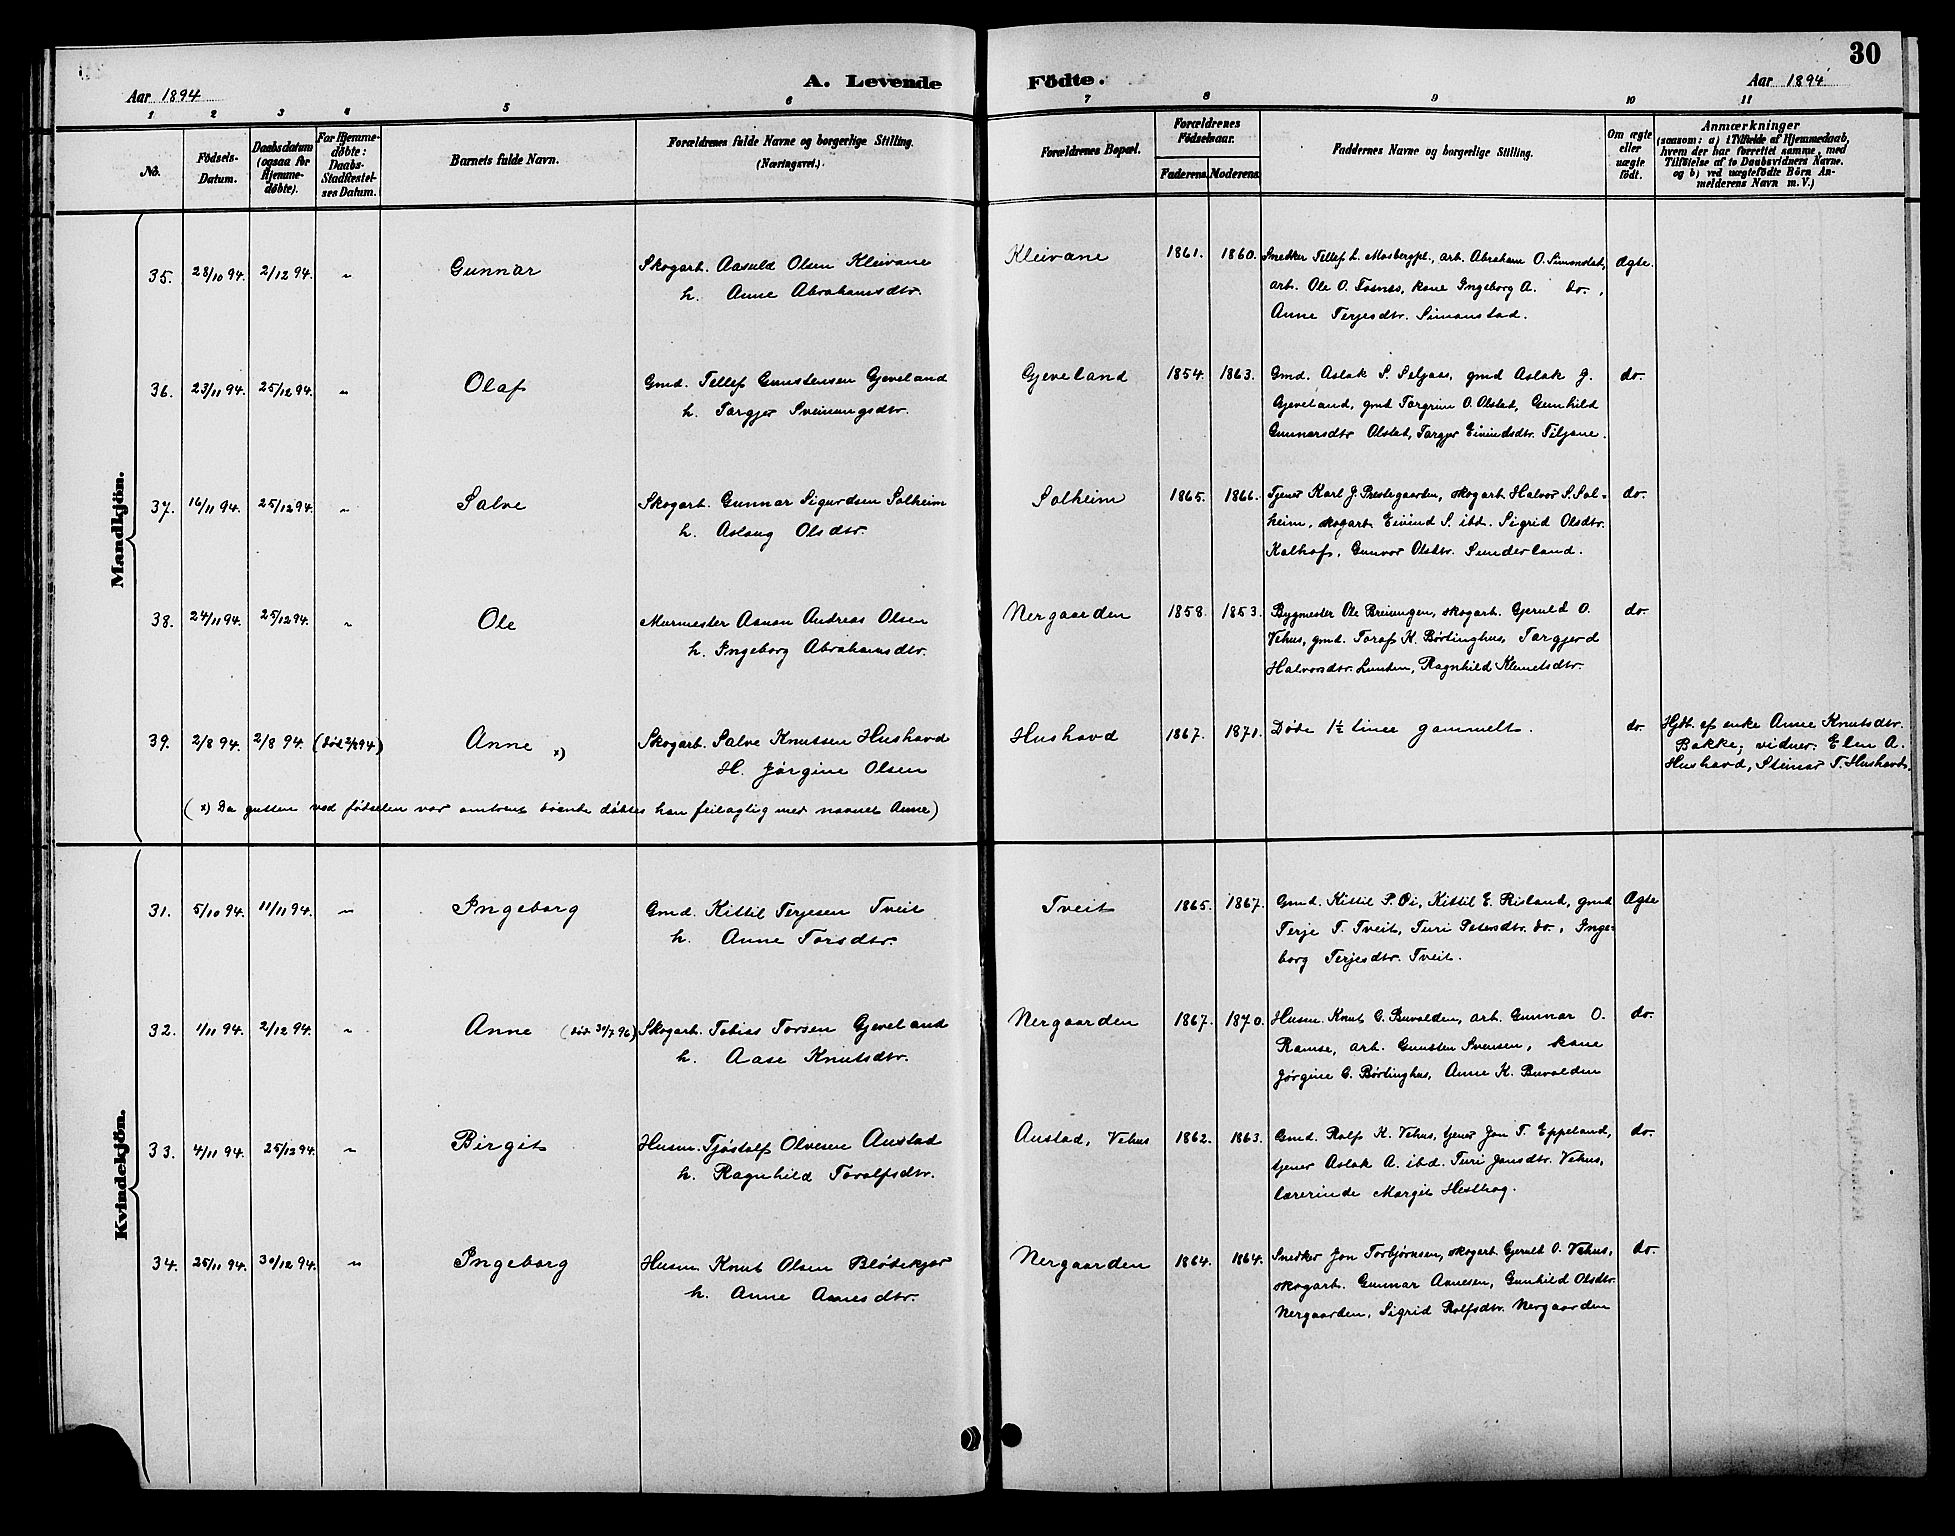 30
A. Levende Födte.
Aar 1894
Aar 1894
1 2 3 4 5 6 7 8 9 10 11
No.
Födsels-Datum.
Daabsdatum (ogsaa for Hjemmedöbte).
For Hjemmedöbte: Daabs-Stadfæstelses Datum.
Barnets fulde Navn.
Forældrenes fulde Navne og borgerlige Stilling. (Næringsvei.)
Forældrenes Bopæl.
Forældrenes Födselsaar.
Faderens. Moderens.
Faddernes Navne og borgerlige Stilling.
Om ægte eller uægte födt.
Anmærkninger
(saasom: a) i Tilfælde af Hjemmedaab, hvem der har forrettet samme, med Tilföielse af to Daabsvidners Navne. og b) ved uægtefödte Börn Anmelderens Navn m. V.)
Mandkjön.
35. 28/10 94. 2/12 94. " Gunnar Skogarb. Aasuld Olsen Kleivane Kleivane 1861. 1860. Snekker Tellef L. Mosbergpl., arb. Abraham O. Simonstad, Ægte.
h. Anne Abrahamsdtr. arb. Ole O. Fosnes, kone Ingeborg A. do.,
Anne Terjesdtr. Simonstad.
36. 23/11 94. 25/12 94. " Olaf Gmd. Tellef Gunstensen Gjeveland Gjeveland 1854. 1863. Gmd. Aslak S. Seljaas, gmd Aslak G. do.
h. Torgjer Sveinungsdtr. Gjeveland, gmd Torgrim O. Olstad, Gunhild
Gunnarsdtr Olstad, Torgjer Eivindsdtr. Tiljane.
37. 16/11 94. 25/12 94. " Salve Skogarb. Gunnar Sigurdsen Solheim Solheim 1865. 1866. Tjener Karl J. Prestegaarden, skogarb. Halvor S. Sol- do.
h. Aslaug Olsdtr. heim, skogarb. Eivind S. ibd. Sigrid Olsdtr.
Kalhof, Gunvor Olsdtr. Sunderland.
38. 24/11 94. 25/12 94. " Ole Murmester Asnon Andreas Olsen Nergaarden 1858. 1853. Bygmester Ole Breiungen, skogarb. Gjeruld O. do.
h. Ingeborg Abrahamsdtr. Vehus, gmd. Toraf K. Børtinghus, Torgjerd
Halvorsdtr. Lunden, Ragnhild Klemetsdtr.
39. 2/8 94. 2/8 94. (død 2/8 94) Anne x) Skogarb. Salve Knutsen Hushovd Hushovd 1867. 1871. Døde 1½ timee gammelt. do. Hjdt. af enke Anne Knutsdtr.
H. Jørgine Olsen Bakke; vidner: Elen A.
Hushovd, Steinar T. Hushovd.
(x) Da gutten ved fødselen var omtrent døende døbtes han feilagtig med navnet Anne)
Kvindekjön.
31. 5/10 94. 11/11 94. " Ingeborg Gmd. Kittil Terjesen Tveit Tveit 1865. 1867. Gmd. Kittil P. Øi, Kittil E. Risland, gmd Ægte
h. Anne Torsdtr. Terje T. Tveit, Turi Petersdtr. do., Inge-
borg Terjesdtr. Tveit.
32. 1/11 94. 2/12 94. " Anne (død 30/7 96) Skogarb. Tobias Torsen Gjeveland Nergaarden 1867. 1870. Husm. Knut G. Buvolden, arb. Gunnar O. do.
h. Aase Knutsdtr. Ramse, arb. Gunsten Svensen, kone
Jørgine G. Børtinghus, Anne K. Buvolden
33. 4/11 94. 25/12 94. " Birgit Husm. Tjøstolf Olversen Austad Austad, Vehus 1862. 1863. Gmd. Rolf K. Vehus, tjener Jon T. Eppeland, do.
h. Ragnhild Torolfsdtr. tjener Aslak A. ibd. Turi Jonsdtr. Vehus,
lærerinde Margit Hesthag.
34. 25/11 94. 30/12 94. " Ingeborg Husm. Knut Olsen Bløtekjær Nergaarden 1864. 1864. Snedker Jon Torbjørnsen, skogarb. Gjeruld O. Vehus, do.
h. Anne Aanesdtr. skogarb. Gunnar Aanesen, Gunhild Olsdtr.
Nergaarden, Sigrid Rolfsdtr. Nergaarden